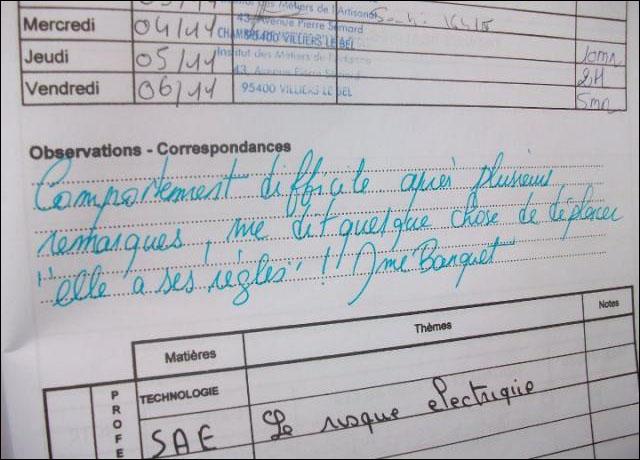 Institut des Métiers de l'Artisanat
Mercredi 04/11 43, Avenue Pierre Semard
95400 VILLIERS LE BEL
Jeudi 05/11 Institut des Métiers de l'Artisanat 10mn
43, Avenue Pierre Semard 2H
Vendredi 06/11 95400 VILLIERS LE BEL 5mn
Observations - Correspondances
Comportement difficile après plusieurs
remarques, me dit quelque chose de déplacer
"elle a ses règles" ! Mme Banquet
Matières Thèmes Notes
PROFE
TECHNOLOGIE
SAE Le risque electrique